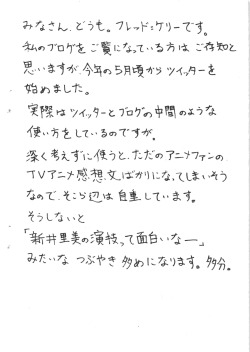 みなさん、どうも。フレッド・ケリーです。
私のブログをご覧になっている方はご存知と
思いますが、今年の5月頃からツイッターを
始めました。
実際はツイッターとブログの中間のような
使い方をしているのですが。
深く考えずに使うと、ただのアニメファンの
TVアニメ感想文ばかりになってしまいそう
なので、そこら辺は自重しています。
そうしないと
「新井里美の演技って面白いなー」
みたいな つぶやき 多めになります。多分。